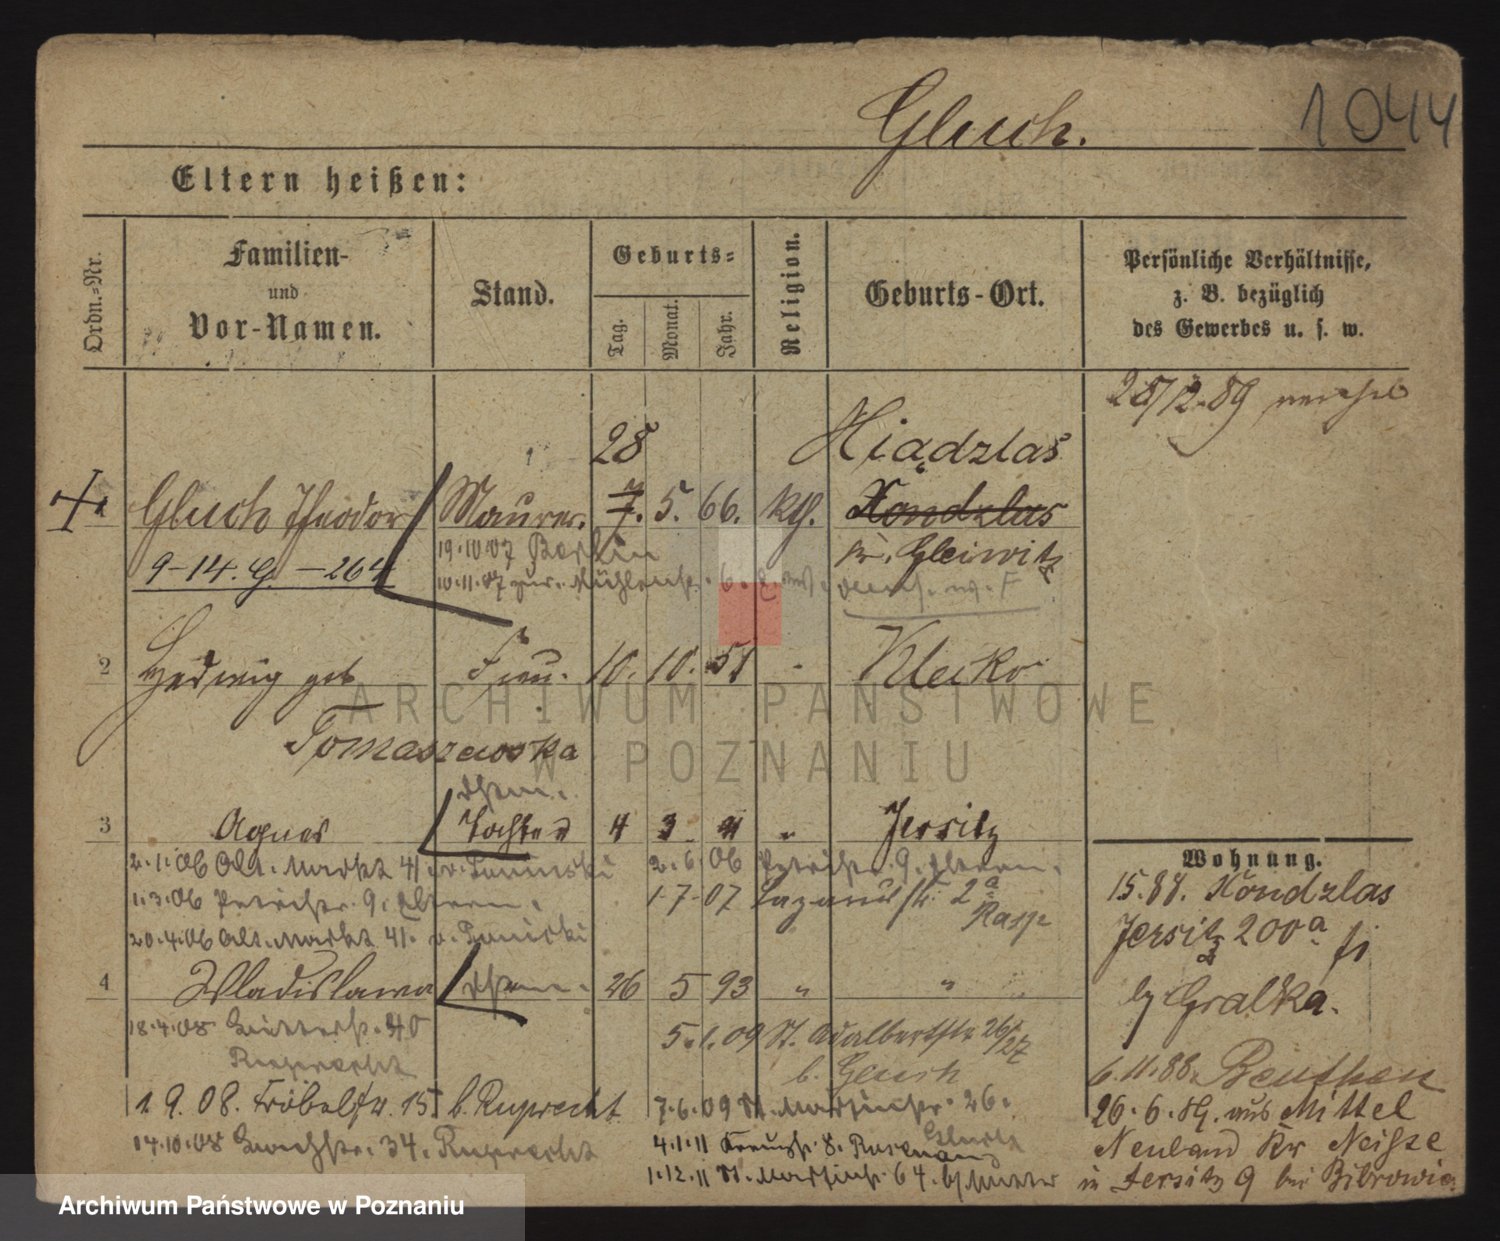 Gluch.
1044
Eltern heißen:
Ordn.-Nr.
Familien-
und
Vor-Namen.
Stand.
Geburts-
Tag.
Monat.
Jahr.
Religion.
Geburts-Ort.
Persönliche Verhältnisse,
z. B. bezüglich
des Gewerbes u. s. w.
28/12.89
28
Hiądzlas
1
Gluch Theodor
Maurer.
7. 5. 66. kth.
Kondzlas
Kr. Gleiwitz
9-14. G. -264
19.10.07 Berlin
10.11.07 zur. Mühlenstr. 6.
2
Hedwig geb
Frau.
10. 10. 51
Klecko
Tomaszewska
ARCHIWUM PAŃSTWOWE
W POZNANIU
3
Agnes
Tochter
4 3 91 "
Jersitz
2.1.06 Alt. Markt 41
2.6.06 Petristr. 9. Eltern.
1.3.06 Petristr. 9. Eltern.
1.7.07 Lazarusstr. 2a
Rasp
20.4.06 Alt. Markt 41.
4
Wladislawa
26 5 93 " "
18.4.08 40
Ruprecht
5.1.09 St. Adalbertstr 26/27
b. Gluch
1.9.08. Fröbelstr. 15 b. Ruprecht
7.6.09 St. Martinstr. 26.
14.10.08 34. Ruprecht
4.1.11 Kreuzstr. 8.
1.12.11 St. Martinstr. 64. b/ Mutter
Wohnung.
15.88. Kondzlas
Jersitz 200a
b/ Gralka.
6.11.88. Beuthen
26.6.89. aus Mittel
Neuland Kr Neisse
in Jersitz 9 bei
Archiwum Państwowe w Poznaniu